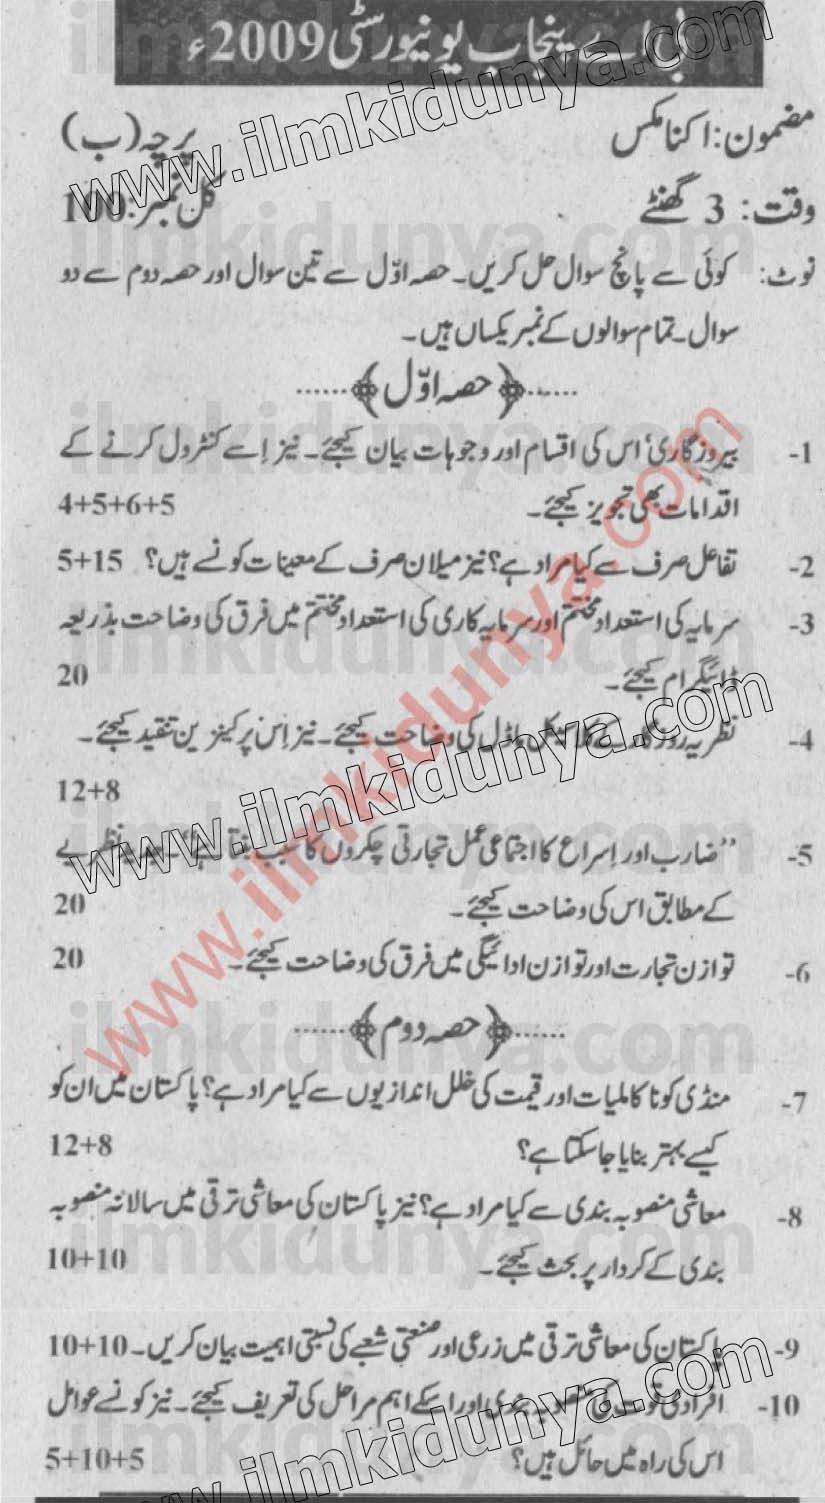 بی اے پنجاب یونیورسٹی 2009ء
مضمون: اکنامکس پرچہ (ب)
وقت: 3 گھنٹے کل نمبر: 100
نوٹ: کوئی سے پانچ سوال حل کریں۔ حصہ اوّل سے تین سوال اور حصہ دوم سے دو
سوال۔ تمام سوالوں کے نمبر یکساں ہیں۔
......﴿حصہ اوّل﴾......
1- بیروزگاری' اس کی اقسام اور وجوہات بیان کیجئے۔ نیز اِسے کنٹرول کرنے کے
اقدامات بھی تجویز کیجئے۔ 4+5+6+5
2- تفاعل صرف سے کیا مراد ہے؟ نیز میلان صرف کے معینات کونسے ہیں؟ 5+15
3- سرمایہ کی استعداد مختتم اور سرمایہ کاری کی استعداد مختتم میں فرق کی وضاحت بذریعہ
ڈائیگرام کیجئے۔ 20
4- نظریہ روزگار کے کلاسیکل ماڈل کی وضاحت کیجئے۔ نیز اِس پر کینزین تنقید کیجئے۔
12+8
5- "ضارب اور اِسراع کا اجتماعی عمل تجارتی چکروں کا سبب بنتا ہے"۔ نظریے
کے مطابق اس کی وضاحت کیجئے۔ 20
6- توازن تجارت اور توازن ادائیگی میں فرق کی وضاحت کیجئے۔ 20
......﴿حصہ دوم﴾......
7- منڈی کو ناکاملیات اور قیمت کی خلل اندازیوں سے کیا مراد ہے؟ پاکستان میں ان کو
کیسے بہتر بنایا جاسکتا ہے؟ 12+8
8- معاشی منصوبہ بندی سے کیا مراد ہے؟ نیز پاکستان کی معاشی ترقی میں سالانہ منصوبہ
بندی کے کردار پر بحث کیجئے۔ 10+10
9- پاکستان کی معاشی ترقی میں زرعی اور صنعتی شعبے کی نسبتی اہمیت بیان کریں۔ 10+10
10- افرادی قوت کی منصوبہ بندی اور اسکے اہم مراحل کی تعریف کیجئے۔ نیز کونسے عوامل
اس کی راہ میں حائل ہیں؟ 5+10+5
www.ilmkidunya.com
www.ilmkidunya.com
www.ilmkidunya.com
www.ilmkidunya.com
ilmkidunya.com
ilmkidunya.com
ilmkidunya.com
ilmkidunya.com
ilmkidunya.com
ilmkidunya.com
ilmkidunya.com